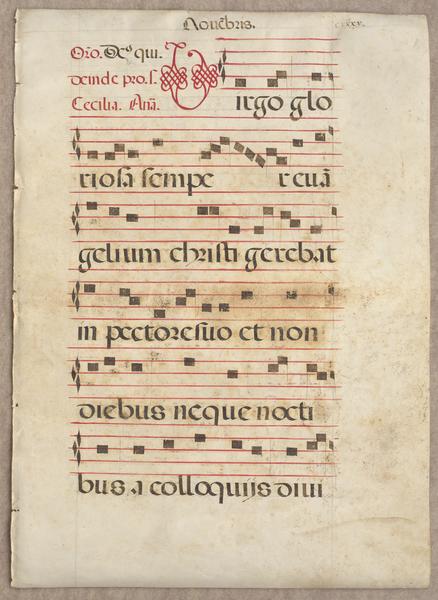 Novẽbris.
Oro. Ds qui.
deinde pro. s.
Cecilia. Añã.
Virgo glo
riosã sempe r euã
gelium christi gerebat
in pectore suo et non
diebus neque nocti
bus a colloquijs diui